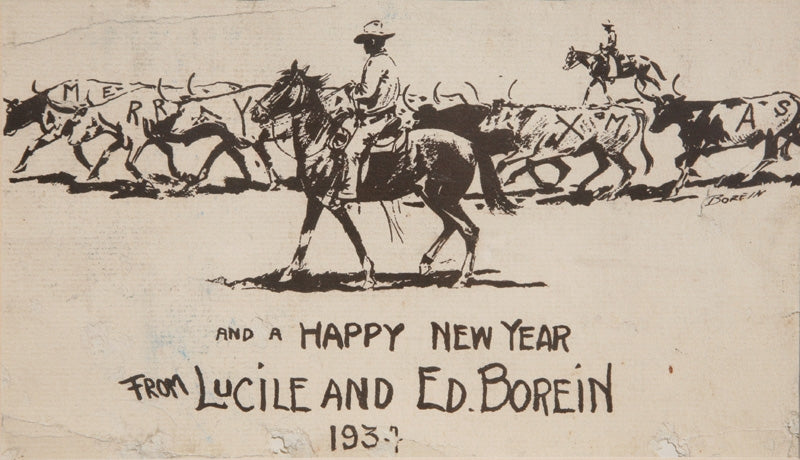 MERRY XMAS
BOREIN
AND A HAPPY NEW YEAR
FROM LUCILE AND ED. BOREIN